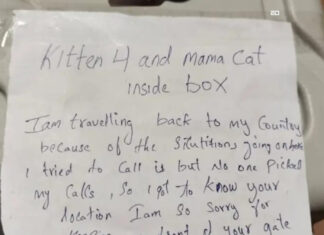 Kitten 4 and mama Cat
inside box
Iam travelling back to my Country
because of the Situtitions going on
I tried to Call is but No one Picked
my Calls, So I got to know your
location Iam So Sorry for
front of your gate